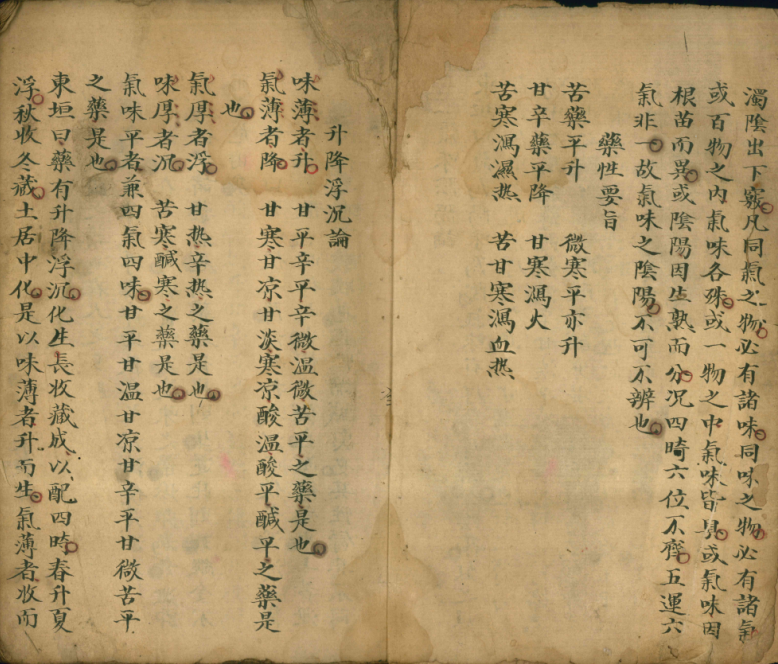 濁陰出下竅凡同氣之物必有諸味同味之物必有諸氣
或百物之內氣味各殊或一物之中氣味皆具或氣味因
根苗而異或陰陽因生熟而分況四時六位不齊五運六
氣非一故氣味之陰陽不可不辨也
藥性要旨
苦藥平升　微寒平亦升
甘辛藥平降　甘寒瀉火
苦寒瀉濕热　苦甘寒瀉血热
升降浮沉論
味薄者升　甘平辛平辛微温微苦平之藥是也
氣薄者降　甘寒甘凉甘淡寒凉酸温酸平醎平之藥是
也
氣厚者浮　甘热辛热之藥是也
味厚者沉　苦寒醎寒之藥是也
氣味平者兼四氣四味甘平甘温甘凉甘辛平甘微苦平
之藥是也
東垣曰藥有升降浮沉化生長收藏成以配四時春升夏
浮秋收冬藏土居中化是以味薄者升而生氣薄者收而